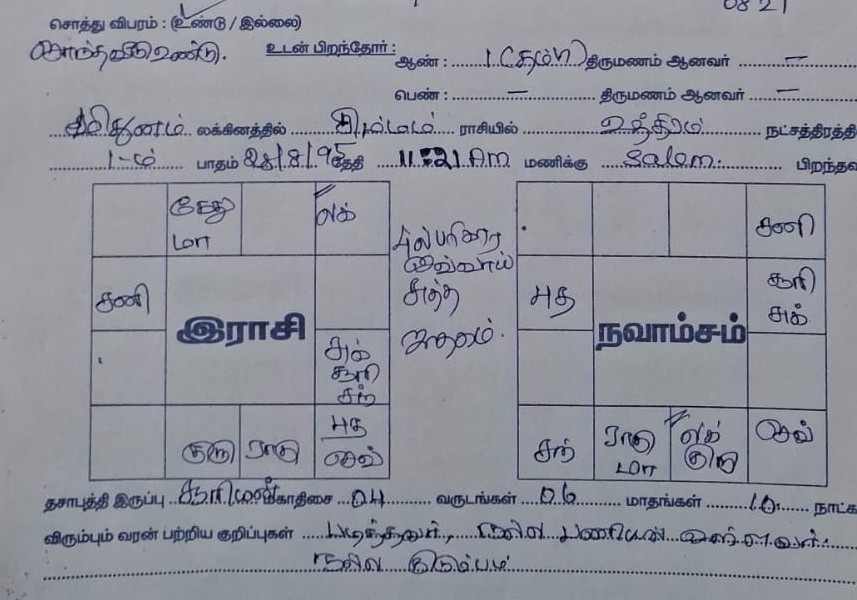 சொத்து விபரம் : (உண்டு / இல்லை)
உண்டு. உடன் பிறந்தோர் : ஆண் : 1 (தம்பி) திருமணம் ஆனவர் —
பெண் : — திருமணம் ஆனவர் —
மிதுனம் லக்கினத்தில் சிம்மம் ராசியில் உத்திரம் நட்சத்திரத்தி
1-ம் பாதம் 28/8/95 தேதி 11:21 Am மணிக்கு Salem. பிறந்தவ
கேது மா லக் சனி
சனி புத சூரி சுக்
இராசி நவாம்சம்
சுக் சூரி சந்
குரு ராகு புத செவ் சந் ராகு மா லக் குரு செவ்
பரிகார செவ்வாய் சுத்த ஜாதகம்.
தசாபுத்தி இருப்பு சூரியன் மகாதிசை 04 வருடங்கள் 06 மாதங்கள் 10 நாட்க
விரும்பும் வரன் பற்றிய குறிப்புகள் படித்தவர், நல்ல பணியில் உள்ளவர்.
நல்ல குடும்பம்